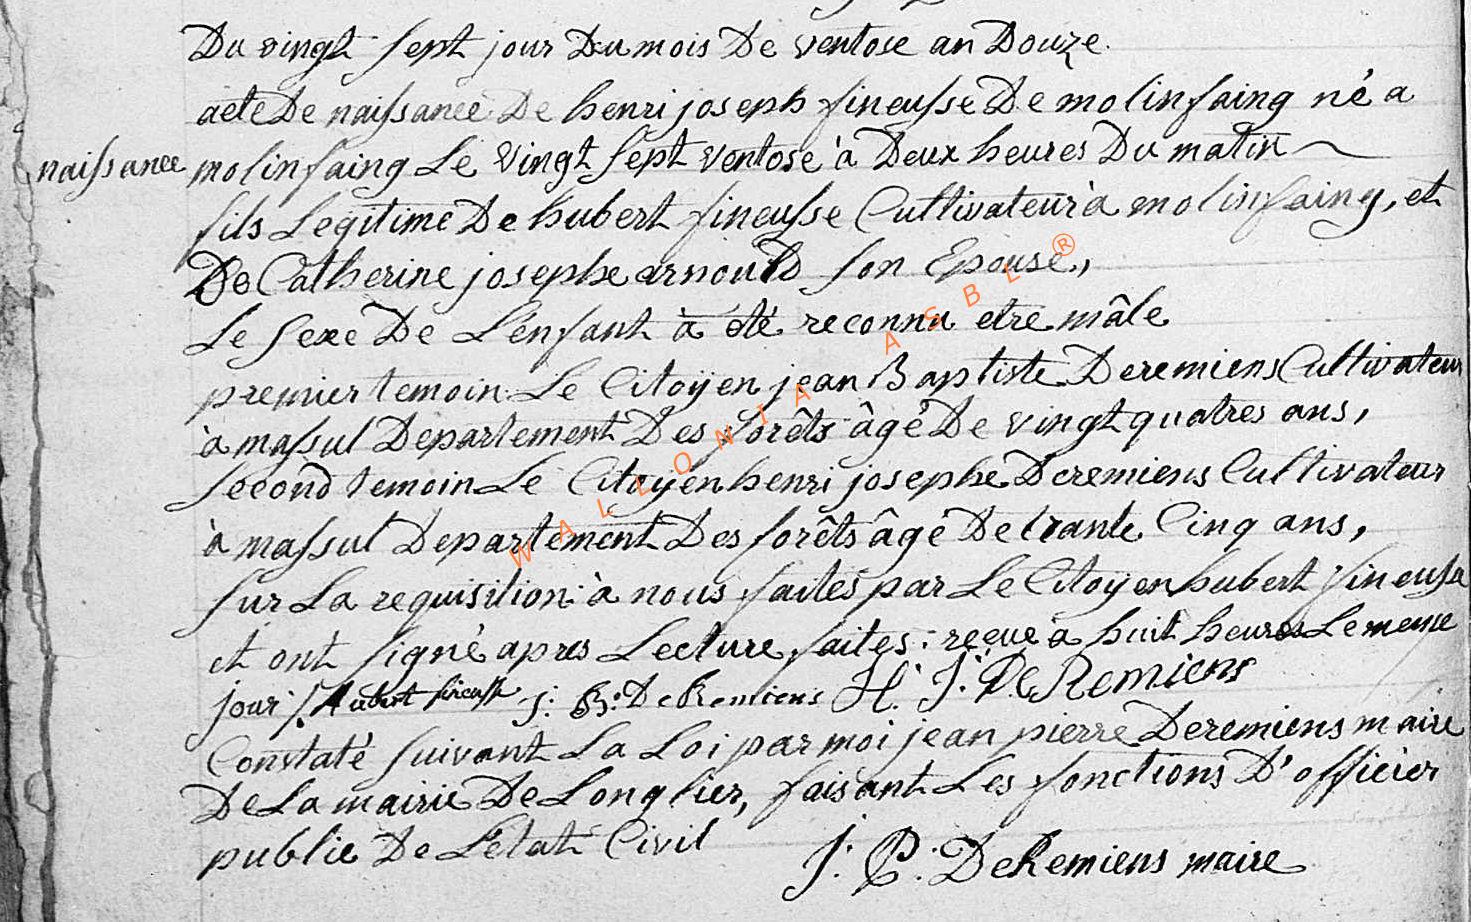 Du vingt sept jour Du mois De ventose an Douze.
acte De naissance De henri joseph fineusse De molinfaing né a
naissance
molinfaing Le vingt sept ventose à Deux heures Du matin
fils Legitime De hubert fineusse Cultivateur à molinfaing, et
De Catherine josephe arnould son Epouse,,
Le sexe De L'enfant à été reconnu etre mâle
premier temoin Le Citoÿen jean Baptiste Deremiens Cultivateur
à massul Departement Des forêts âgé De vingt quatres ans,
second temoin Le Citoÿen henri josephe Deremiens Cultivateur
à massul Departement Des forêts âgé De trante Cinq ans,
sur La requisition à nous faites par Le Citoÿen hubert fineusse
et ont signé apres Lecture faites: reçue à huit heures Le meme
jour / Hubert fineusse J: B: DeRemiens H. J. DeRemiens
Constaté suivant La Loi par moi jean pierre Deremiens maire
De La mairie De Longlier, faisant Les fonctions D'officier
public De L'etat Civil
J: P: DeRemiens maire
WALLONIA ASBL ®